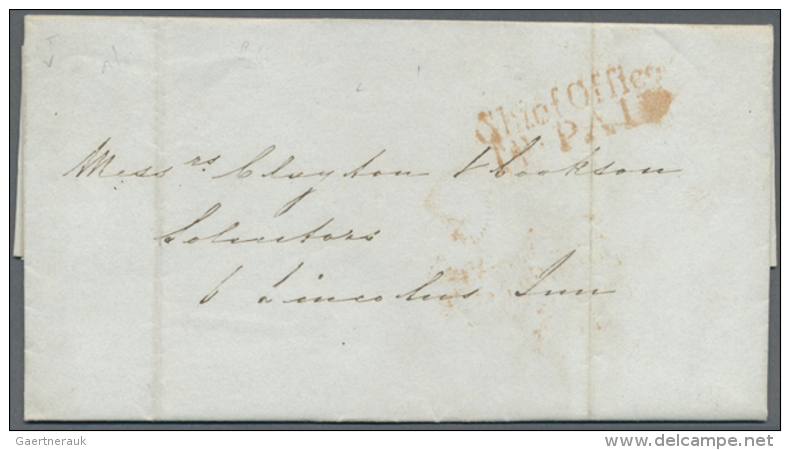 Chief Office
1dy PAID
Messrs Clayton & Cookson
Solicitors
6 Lincolns Inn
Gaertnerauk
www.delcampe.net